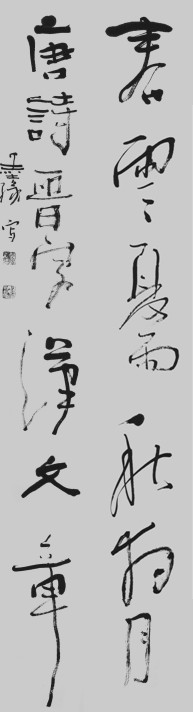 春雲夏雨秋夜月
唐詩晋字漢文章
写